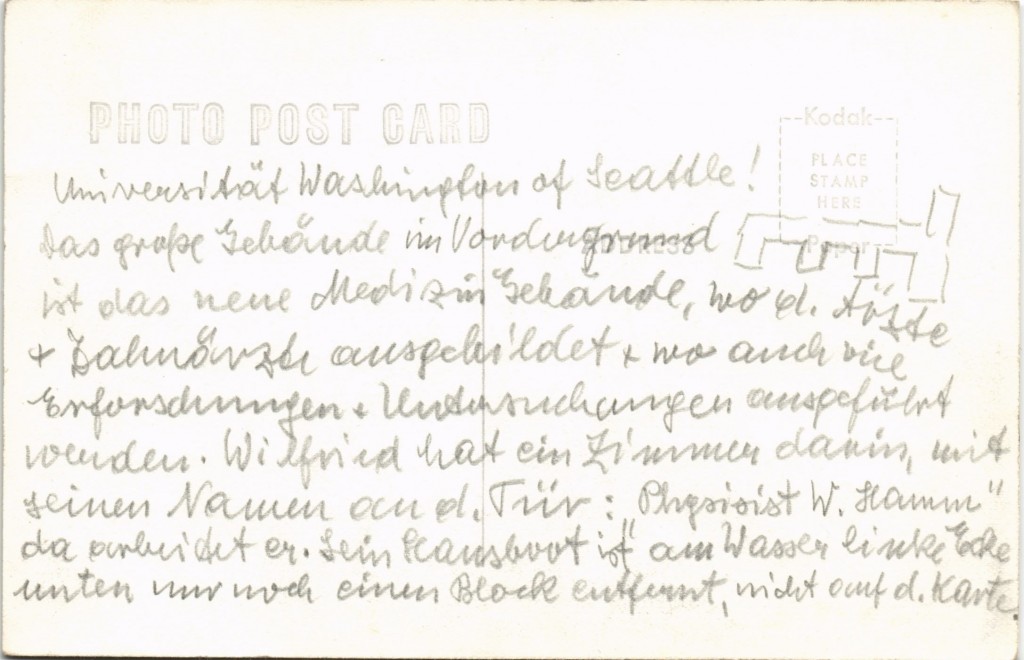 PHOTO POST CARD
Kodak
PLACE
STAMP
HERE
Paper
ADDRESS
Universität Washington of Seattle!
Das große Gebände im Vordergrund
ist das neue Medizin Gebände, wo d. Ärzte
+ Zahnärzte ausgebildet + wo auch viele
Erforschungen + Untersuchungen ausgeführt
werden. Wilfried hat ein Zimmer darin, mit
seinen Namen an d. Tür: "Physisist W. Hamm"
da arbeidet er. Sein Hausboot ist am Wasser linke Ecke
unten nur noch einen Block entfernt, nicht auf d. Karte.